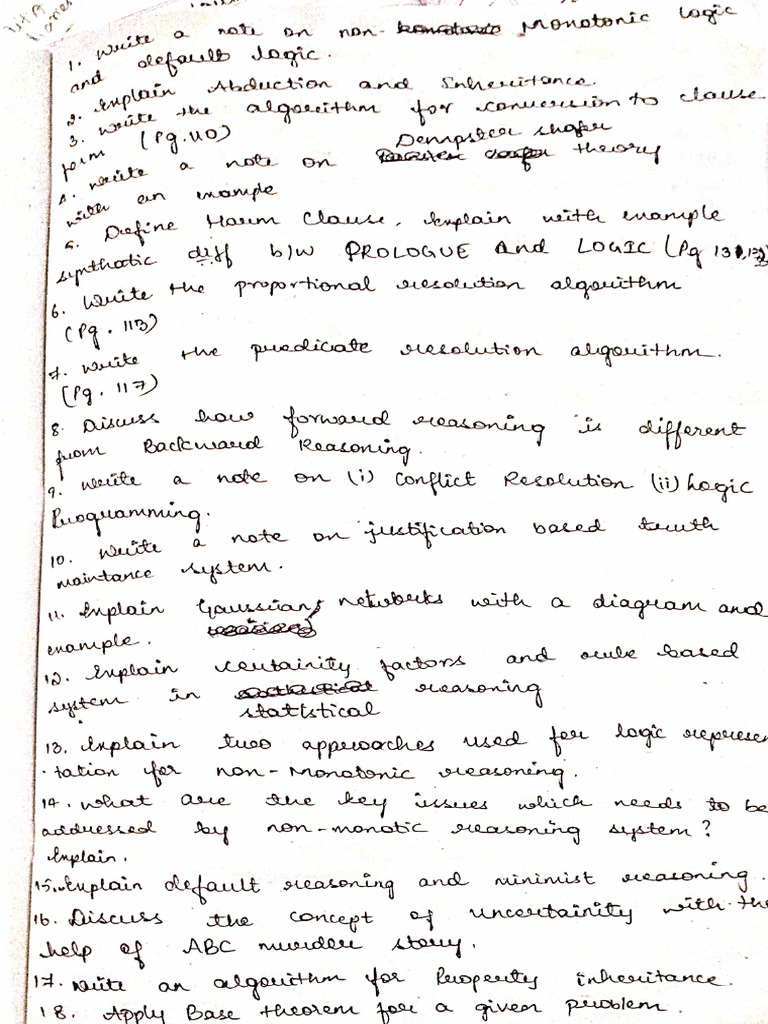 1. Write a note on non- Monotonic Logic
and default logic.
2. Explain Abduction and Inheritance.
3. Write the algorithm for conversion to clause
form (Pg. 110)
Dempster shafer
4. Write a note on theory
with an example
5. Define Harm Clause. Explain with example
synthatic diff b/w PROLOGUE And LOGIC (Pg 131,132)
6. Write the proportional resolution algorithm
(Pg. 113)
7. Write the predicate resolution algorithm.
(Pg. 117)
8. Discuss how forward reasoning is different
from Backward Reasoning.
9. Write a note on (i) Conflict Resolution (ii) Logic
Programming.
10. Write a note on justification based truth
maintance system.
11. Explain Gaussian networks with a diagram and
example.
12. Explain certainity factors and rule based
system in reasoning
statistical
13. Explain two approaches used for logic represen
-tation for non-Monotonic reasoning.
14. What are the key issues which needs to be
addressed by non-monotic reasoning system?
Explain.
15. Explain default reasoning and minimist reasoning.
16. Discuss the concept of uncertainity with the
help of ABC murder story.
17. Write an algorithm for Property inheritance.
18. Apply Base theorem for a given problem.